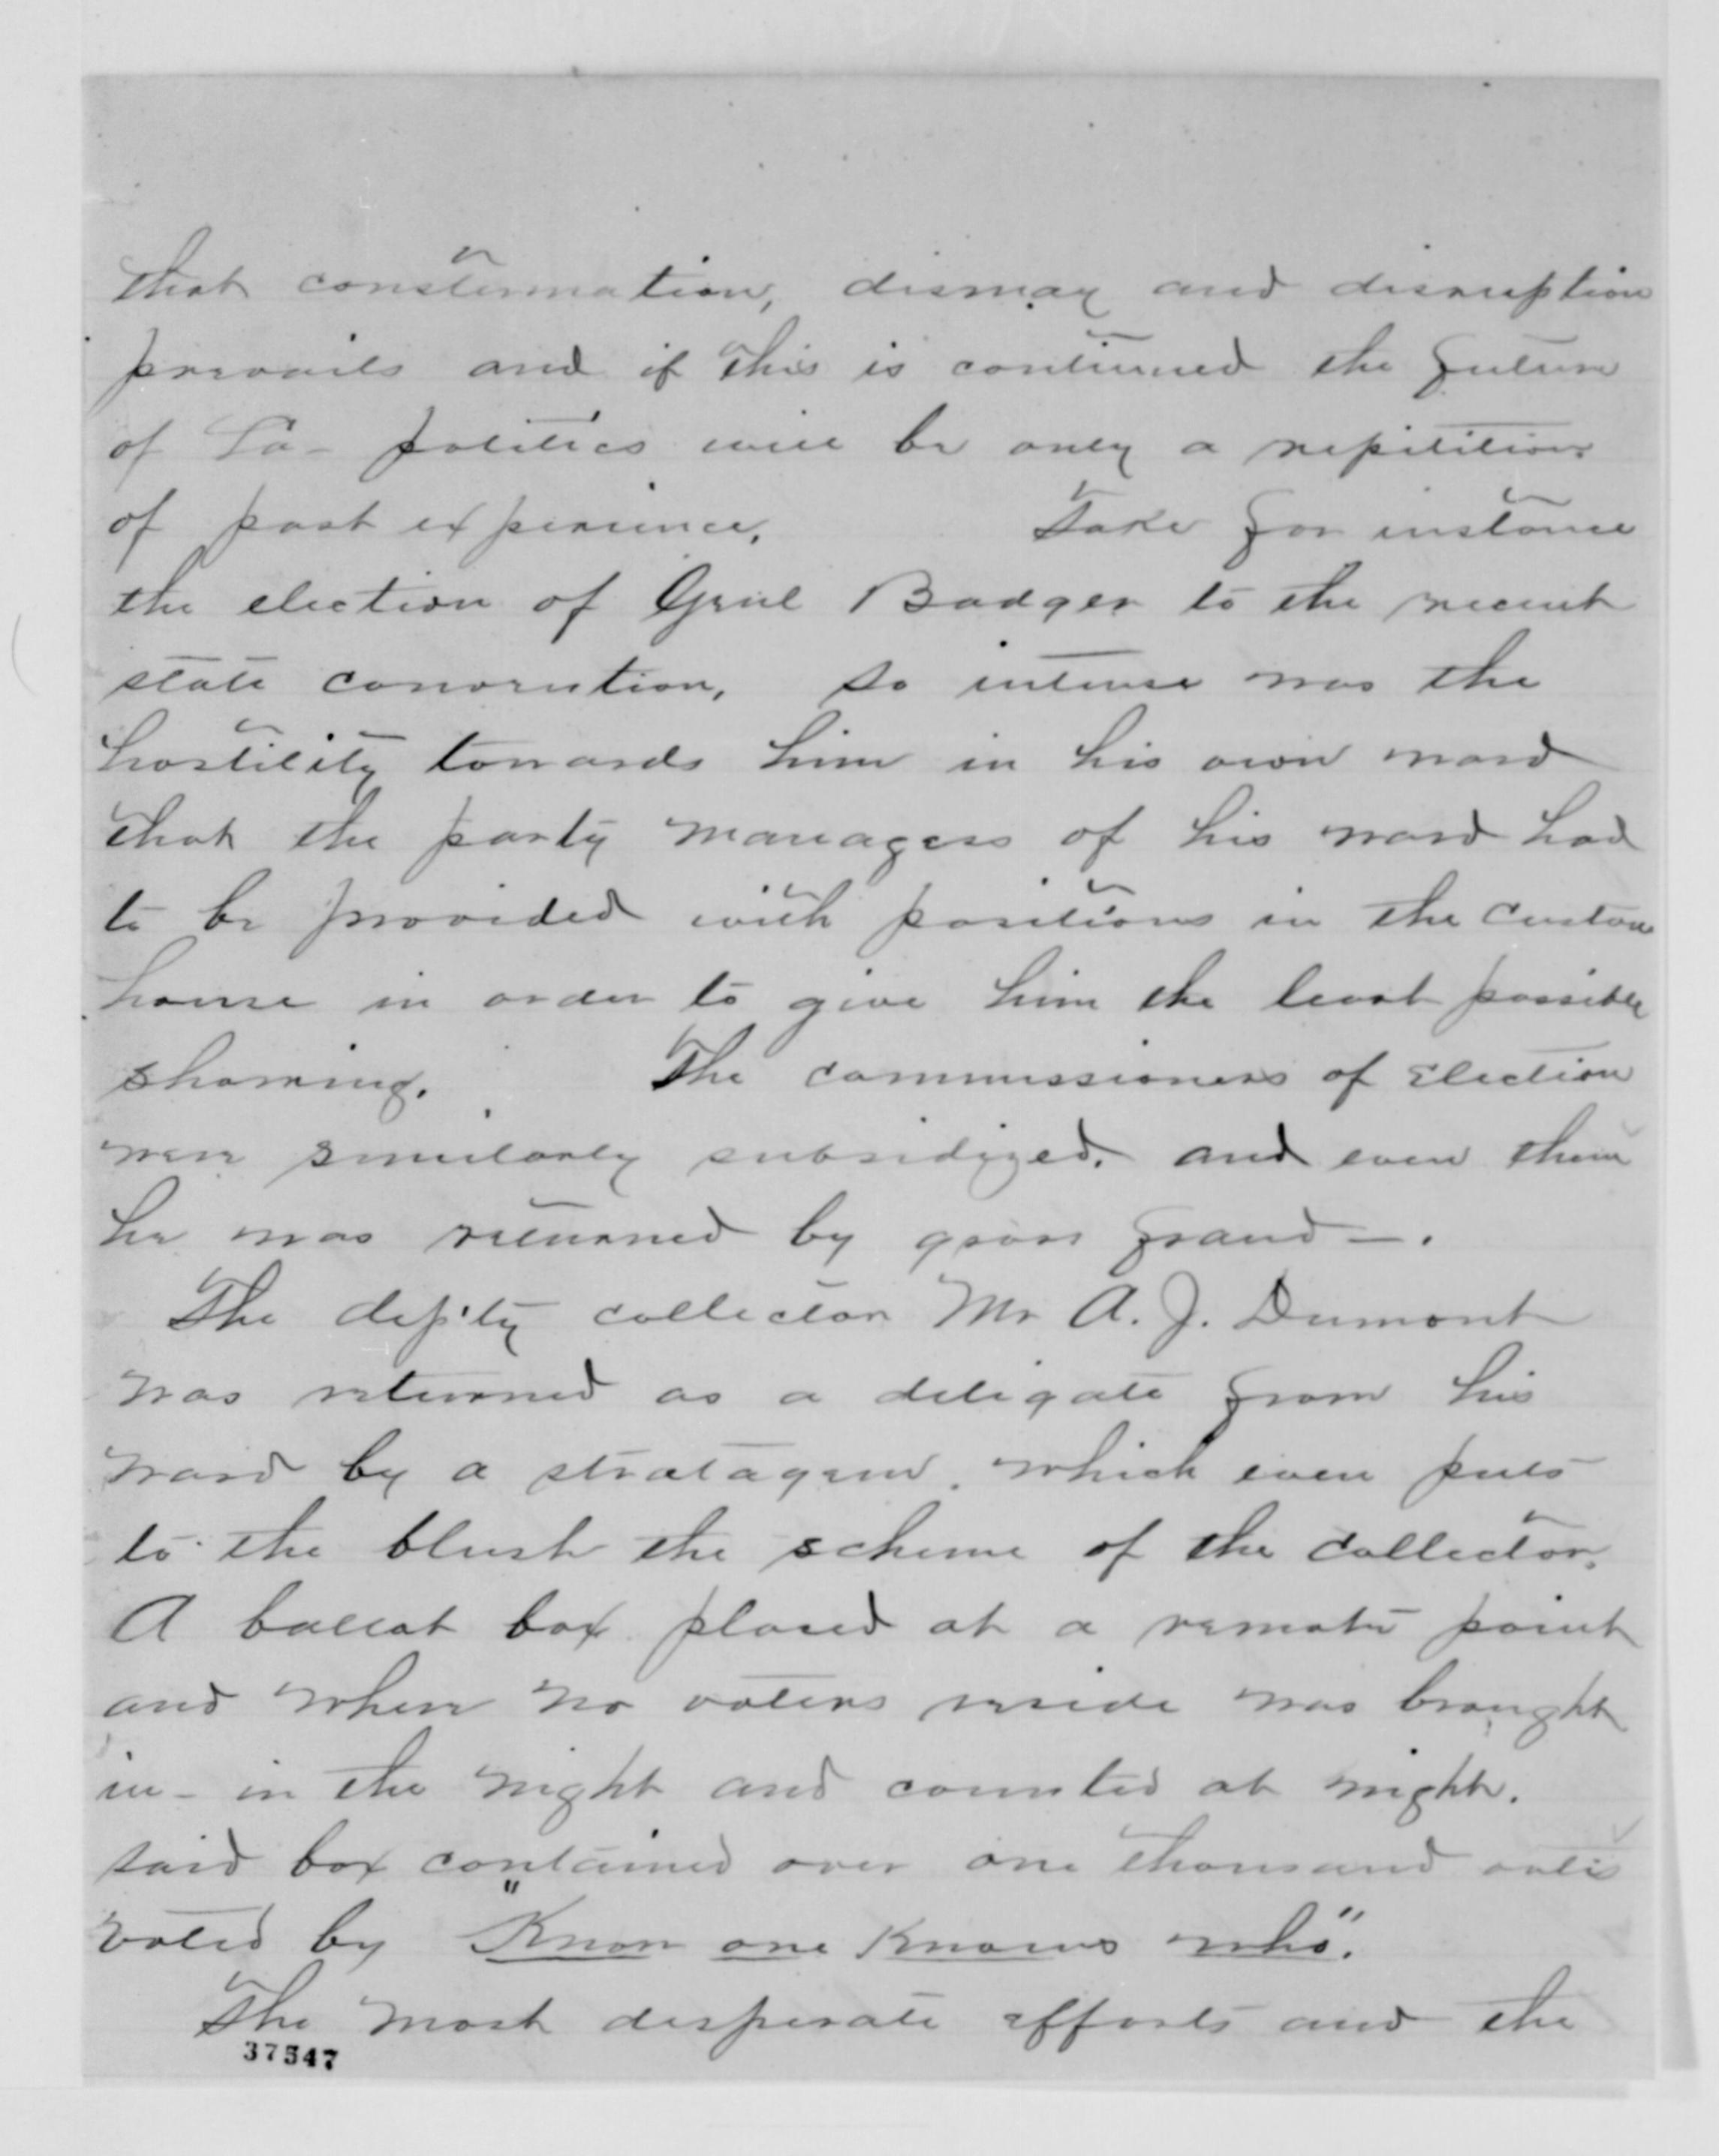 that consternation, dismay and disruption
prevails and if this is continued the future
of La- politics will be only a repitition
of past experience. Take for instance
the election of Genl Badger to the recent
state convention, so intense was the
hostility towards him in his own ward
that the party managers of his ward had
to be provided with positions in the Custom
house in order to give him the least possible
showing. The commissioners of Election
were similarly subsidized. and even then
he was returned by gross fraud —.
The deputy collector Mr A. J. Dumont
was returned as a deligate from his
ward by a stratagem. which even puts
to the blush the scheme of the Collector.
A ballot box placed at a remote point
and where no voters reside was brought
in - in the night and counted at night.
said box contained over one thousand votes
voted by "Know one Knows who".
The most desperate efforts and the
37547